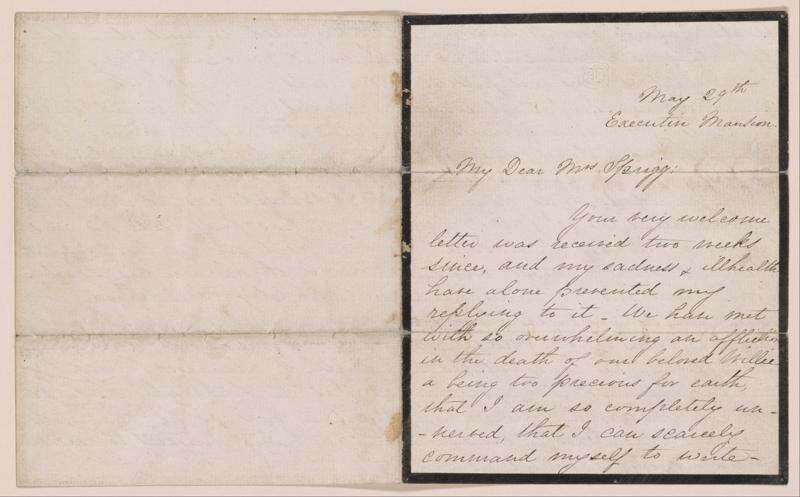 May 29th
Executive Mansion.
My Dear Mrs Sprigg:
Your very welcome
letter was received two weeks
since, and my sadness & ill health
have alone prevented my
replying to it - We have met
with so overwhelming an affliction
in the death of our beloved Willie
a being too precious for earth,
that I am so completely un-
-nerved, that I can scarcely
command myself to write -